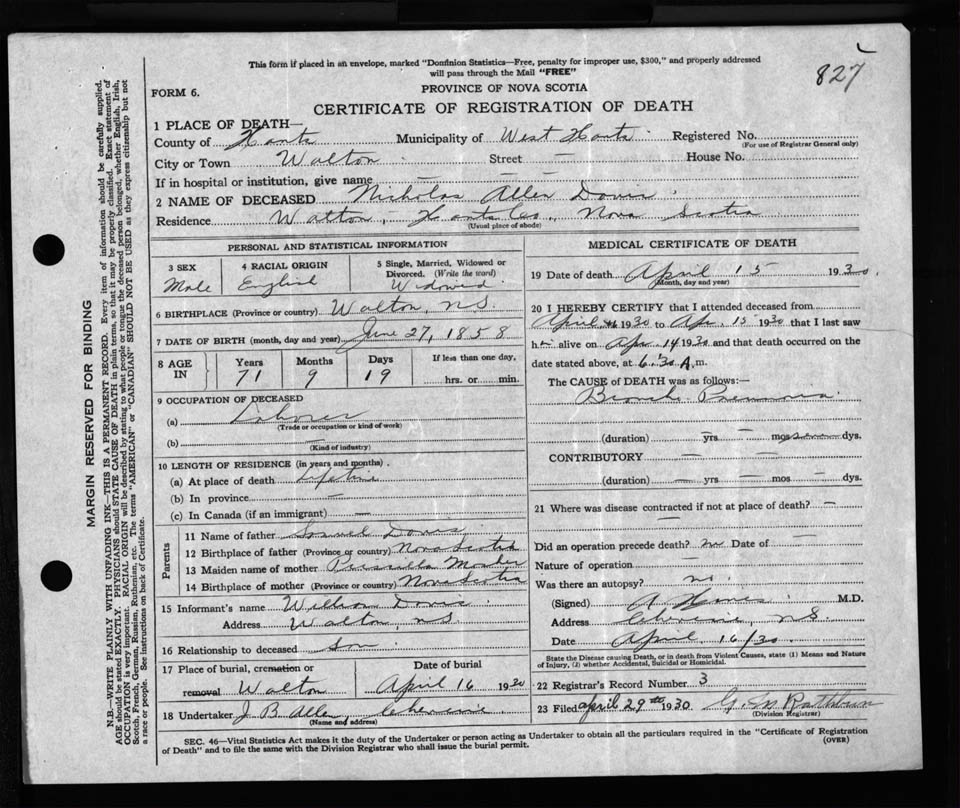 This form if placed in an envelope, marked "Dominion Statistics—Free, penalty for improper use, $300," and properly addressed
will pass through the Mail "FREE"
827
FORM 6.
PROVINCE OF NOVA SCOTIA
CERTIFICATE OF REGISTRATION OF DEATH
1 PLACE OF DEATH—
County of Hants Municipality of West Hants Registered No.
(For use of Registrar General only)
City or Town Walton Street — House No.
If in hospital or institution, give name — — —
2 NAME OF DECEASED Nicholas Allen Davis
Residence Walton, Hants Co., Nova Scotia
(Usual place of abode)
PERSONAL AND STATISTICAL INFORMATION
3 SEX 4 RACIAL ORIGIN 5 Single, Married, Widowed or
Divorced. (Write the word)
Male English Widowed
6 BIRTHPLACE (Province or country) Walton, N.S.
7 DATE OF BIRTH (month, day and year) June 27, 1858
8 AGE IN Years Months Days If less than one day,
71 9 19 hrs. or min.
9 OCCUPATION OF DECEASED
(a) Laborer
(Trade or occupation or kind of work)
(b) —
(Kind of industry)
10 LENGTH OF RESIDENCE (in years and months)
(a) At place of death Lifetime
(b) In province —
(c) In Canada (if an immigrant) —
Parents
11 Name of father Samuel Davis
12 Birthplace of father (Province or country) Nova Scotia
13 Maiden name of mother Priscilla Mosher
14 Birthplace of mother (Province or country) Nova Scotia
15 Informant's name William Davis
Address Walton, N.S.
16 Relationship to deceased Son
17 Place of burial, cremation or Date of burial
removal Walton April 16 1930
18 Undertaker J B Allen, Cheverie
(Name and address)
MEDICAL CERTIFICATE OF DEATH
19 Date of death April 15 1930
(Month, day and year)
20 I HEREBY CERTIFY that I attended deceased from
April 1930 to Apr. 15 1930 that I last saw
him alive on Apr. 14 1930 and that death occurred on the
date stated above, at 6.30 A.m.
The CAUSE of DEATH was as follows:—
Broncho Pneumonia
(duration) — yrs — mos seven dys.
CONTRIBUTORY — —
(duration) — yrs — mos — dys.
21 Where was disease contracted if not at place of death? —
Did an operation precede death? no Date of —
Nature of operation —
Was there an autopsy? no.
(Signed) A M.D.
Address Cheverie, N.S.
Date April 16/30
State the Disease causing Death, or in death from Violent Causes, state (1) Means and Nature
of Injury, (2) whether Accidental, Suicidal or Homicidal.
22 Registrar's Record Number 3
23 Filed April 29th 1930 Rathbun
(Division Registrar)
SEC. 46—Vital Statistics Act makes it the duty of the Undertaker or person acting as Undertaker to obtain all the particulars required in the "Certificate of Registration
of Death" and to file the same with the Division Registrar who shall issue the burial permit.
(OVER)
MARGIN RESERVED FOR BINDING
N.B.—WRITE PLAINLY WITH UNFADING INK—THIS IS A PERMANENT RECORD. Every item of information should be carefully supplied.
AGE should be stated EXACTLY. PHYSICIANS should STATE CAUSE OF DEATH in plain terms, so that it may be properly classified. Exact statement of
OCCUPATION is very important. RACIAL ORIGIN will be described by stating to what people or tongue the deceased person belonged, whether English, Irish,
Scotch, French, German, Russian, Ruthenian, etc. The terms "AMERICAN" or "CANADIAN" SHOULD NOT BE USED as they express citizenship but not
a race or people. See instructions on back of Certificate.